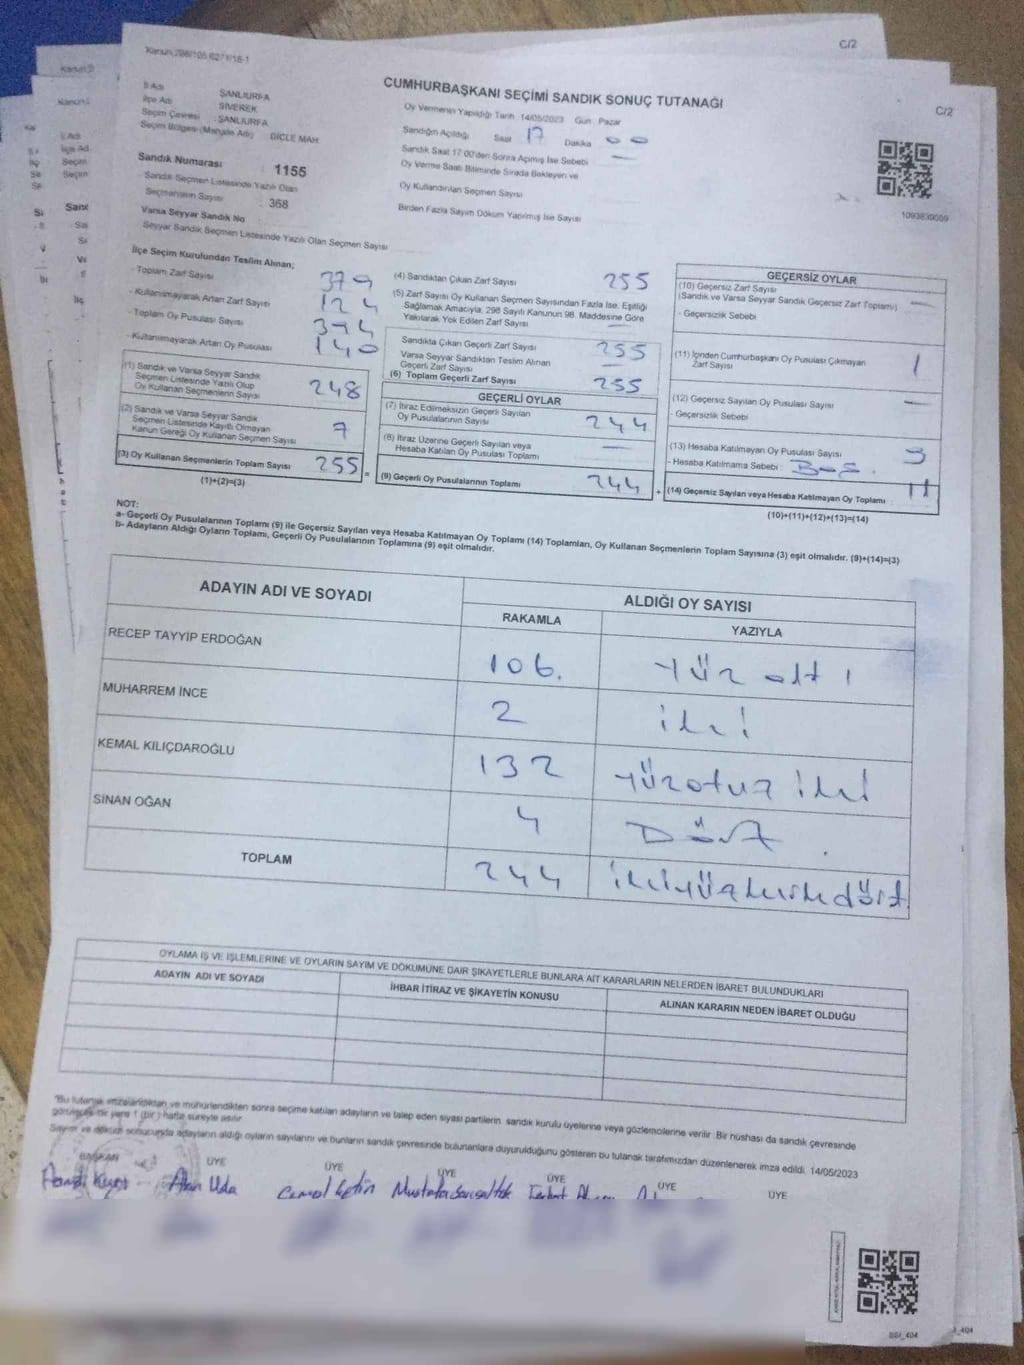 C/2
C/2
CUMHURBAŞKANI SEÇİMİ SANDIK SONUÇ TUTANAĞI
İl Adı : ŞANLIURFA
İlçe Adı : SİVEREK
Seçim Çevresi : ŞANLIURFA
Seçim Bölgesi (Mahalle Adı) : DİCLE MAH
Oy Vermenin Yapıldığı Tarih 14/05/2023 Gün : Pazar
Sandığın Açıldığı Saat 17 Dakika 00
Sandık Saat 17:00'den Sonra Açılmış İse Sebebi —
Oy Verme Saati Bitiminde Sırada Bekleyen ve
Oy Kullandırılan Seçmen Sayısı
Birden Fazla Sayım Döküm Yapılmış İse Sayısı
Sandık Numarası : 1155
Sandık Seçmen Listesinde Yazılı Olan
Seçmenlerin Sayısı : 368
Varsa Seyyar Sandık No
Seyyar Sandık Seçmen Listesinde Yazılı Olan Seçmen Sayısı
1093830059
İlçe Seçim Kurulundan Teslim Alınan;
- Toplam Zarf Sayısı 379
- Kullanılmayarak Artan Zarf Sayısı 124
- Toplam Oy Pusulası Sayısı 394
- Kullanılmayarak Artan Oy Pusulası 140
(1) Sandık ve Varsa Seyyar Sandık
Seçmen Listesinde Yazılı Olup
Oy Kullanan Seçmenlerin Sayısı 248
(2) Sandık ve Varsa Seyyar Sandık
Seçmen Listesinde Kayıtlı Olmayan
Kanun Gereği Oy Kullanan Seçmen Sayısı 7
(3) Oy Kullanan Seçmenlerin Toplam Sayısı 255 =
(1)+(2)=(3)
(4) Sandıktan Çıkan Zarf Sayısı 255
(5) Zarf Sayısı Oy Kullanan Seçmen Sayısından Fazla İse, Eşitliği
Sağlamak Amacıyla, 298 Sayılı Kanunun 98. Maddesine Göre
Yakılarak Yok Edilen Zarf Sayısı —
Sandıkta Çıkan Geçerli Zarf Sayısı 255
Varsa Seyyar Sandıktan Teslim Alınan
Geçerli Zarf Sayısı —
(6) Toplam Geçerli Zarf Sayısı 255
GEÇERLİ OYLAR
(7) İtiraz Edilmeksizin Geçerli Sayılan
Oy Pusulalarının Sayısı 244
(8) İtiraz Üzerine Geçerli Sayılan veya
Hesaba Katılan Oy Pusulası Toplamı —
(9) Geçerli Oy Pusulalarının Toplamı 244 +
GEÇERSİZ OYLAR
(10) Geçersiz Zarf Sayısı
(Sandık ve Varsa Seyyar Sandık Geçersiz Zarf Toplamı) —
- Geçersizlik Sebebi :
(11) İçinden Cumhurbaşkanı Oy Pusulası Çıkmayan
Zarf Sayısı 1
(12) Geçersiz Sayılan Oy Pusulası Sayısı —
- Geçersizlik Sebebi :
(13) Hesaba Katılmayan Oy Pusulası Sayısı
- Hesaba Katılmama Sebebi :
(14) Geçersiz Sayılan veya Hesaba Katılmayan Oy Toplamı : 11
(10)+(11)+(12)+(13)=(14)
NOT:
a- Geçerli Oy Pusulalarının Toplamı (9) ile Geçersiz Sayılan veya Hesaba Katılmayan Oy Toplamı (14) Toplamları, Oy Kullanan Seçmenlerin Toplam Sayısına (3) eşit olmalıdır. (9)+(14)=(3)
b- Adayların Aldığı Oyların Toplamı, Geçerli Oy Pusulalarının Toplamına (9) eşit olmalıdır.
ADAYIN ADI VE SOYADI
ALDIĞI OY SAYISI
RAKAMLA YAZIYLA
RECEP TAYYİP ERDOĞAN 106. Yüz altı
MUHARREM İNCE 2 iki
KEMAL KILIÇDAROĞLU 132 Yüzotuz iki
SİNAN OĞAN 4 Dört.
TOPLAM 244 ikiyüzkırkdört
OYLAMA İŞ VE İŞLEMLERİNE VE OYLARIN SAYIM VE DÖKÜMÜNE DAİR ŞİKAYETLERLE BUNLARA AİT KARARLARIN NELERDEN İBARET BULUNDUKLARI
ADAYIN ADI VE SOYADI
İHBAR İTİRAZ VE ŞİKAYETİN KONUSU
ALINAN KARARIN NEDEN İBARET OLDUĞU
*Bu tutanak imzalandıktan ve mühürlendikten sonra seçime katılan adayların ve talep eden siyasi partilerin sandık kurulu üyelerine veya gözlemcilerine verilir. Bir nüshası da sandık çevresinde
görülecek bir yere 1 (bir) hafta süreyle asılır.
Sayım ve döküm sonucunda adayların aldığı oyların sayılarını ve bunların sandık çevresinde bulunanlara duyurulduğunu gösteren bu tutanak tarafımızdan düzenlenerek imza edildi. 14/05/2023
BAŞKAN ÜYE ÜYE ÜYE ÜYE ÜYE ÜYE
Cemal Çetin Mustafa